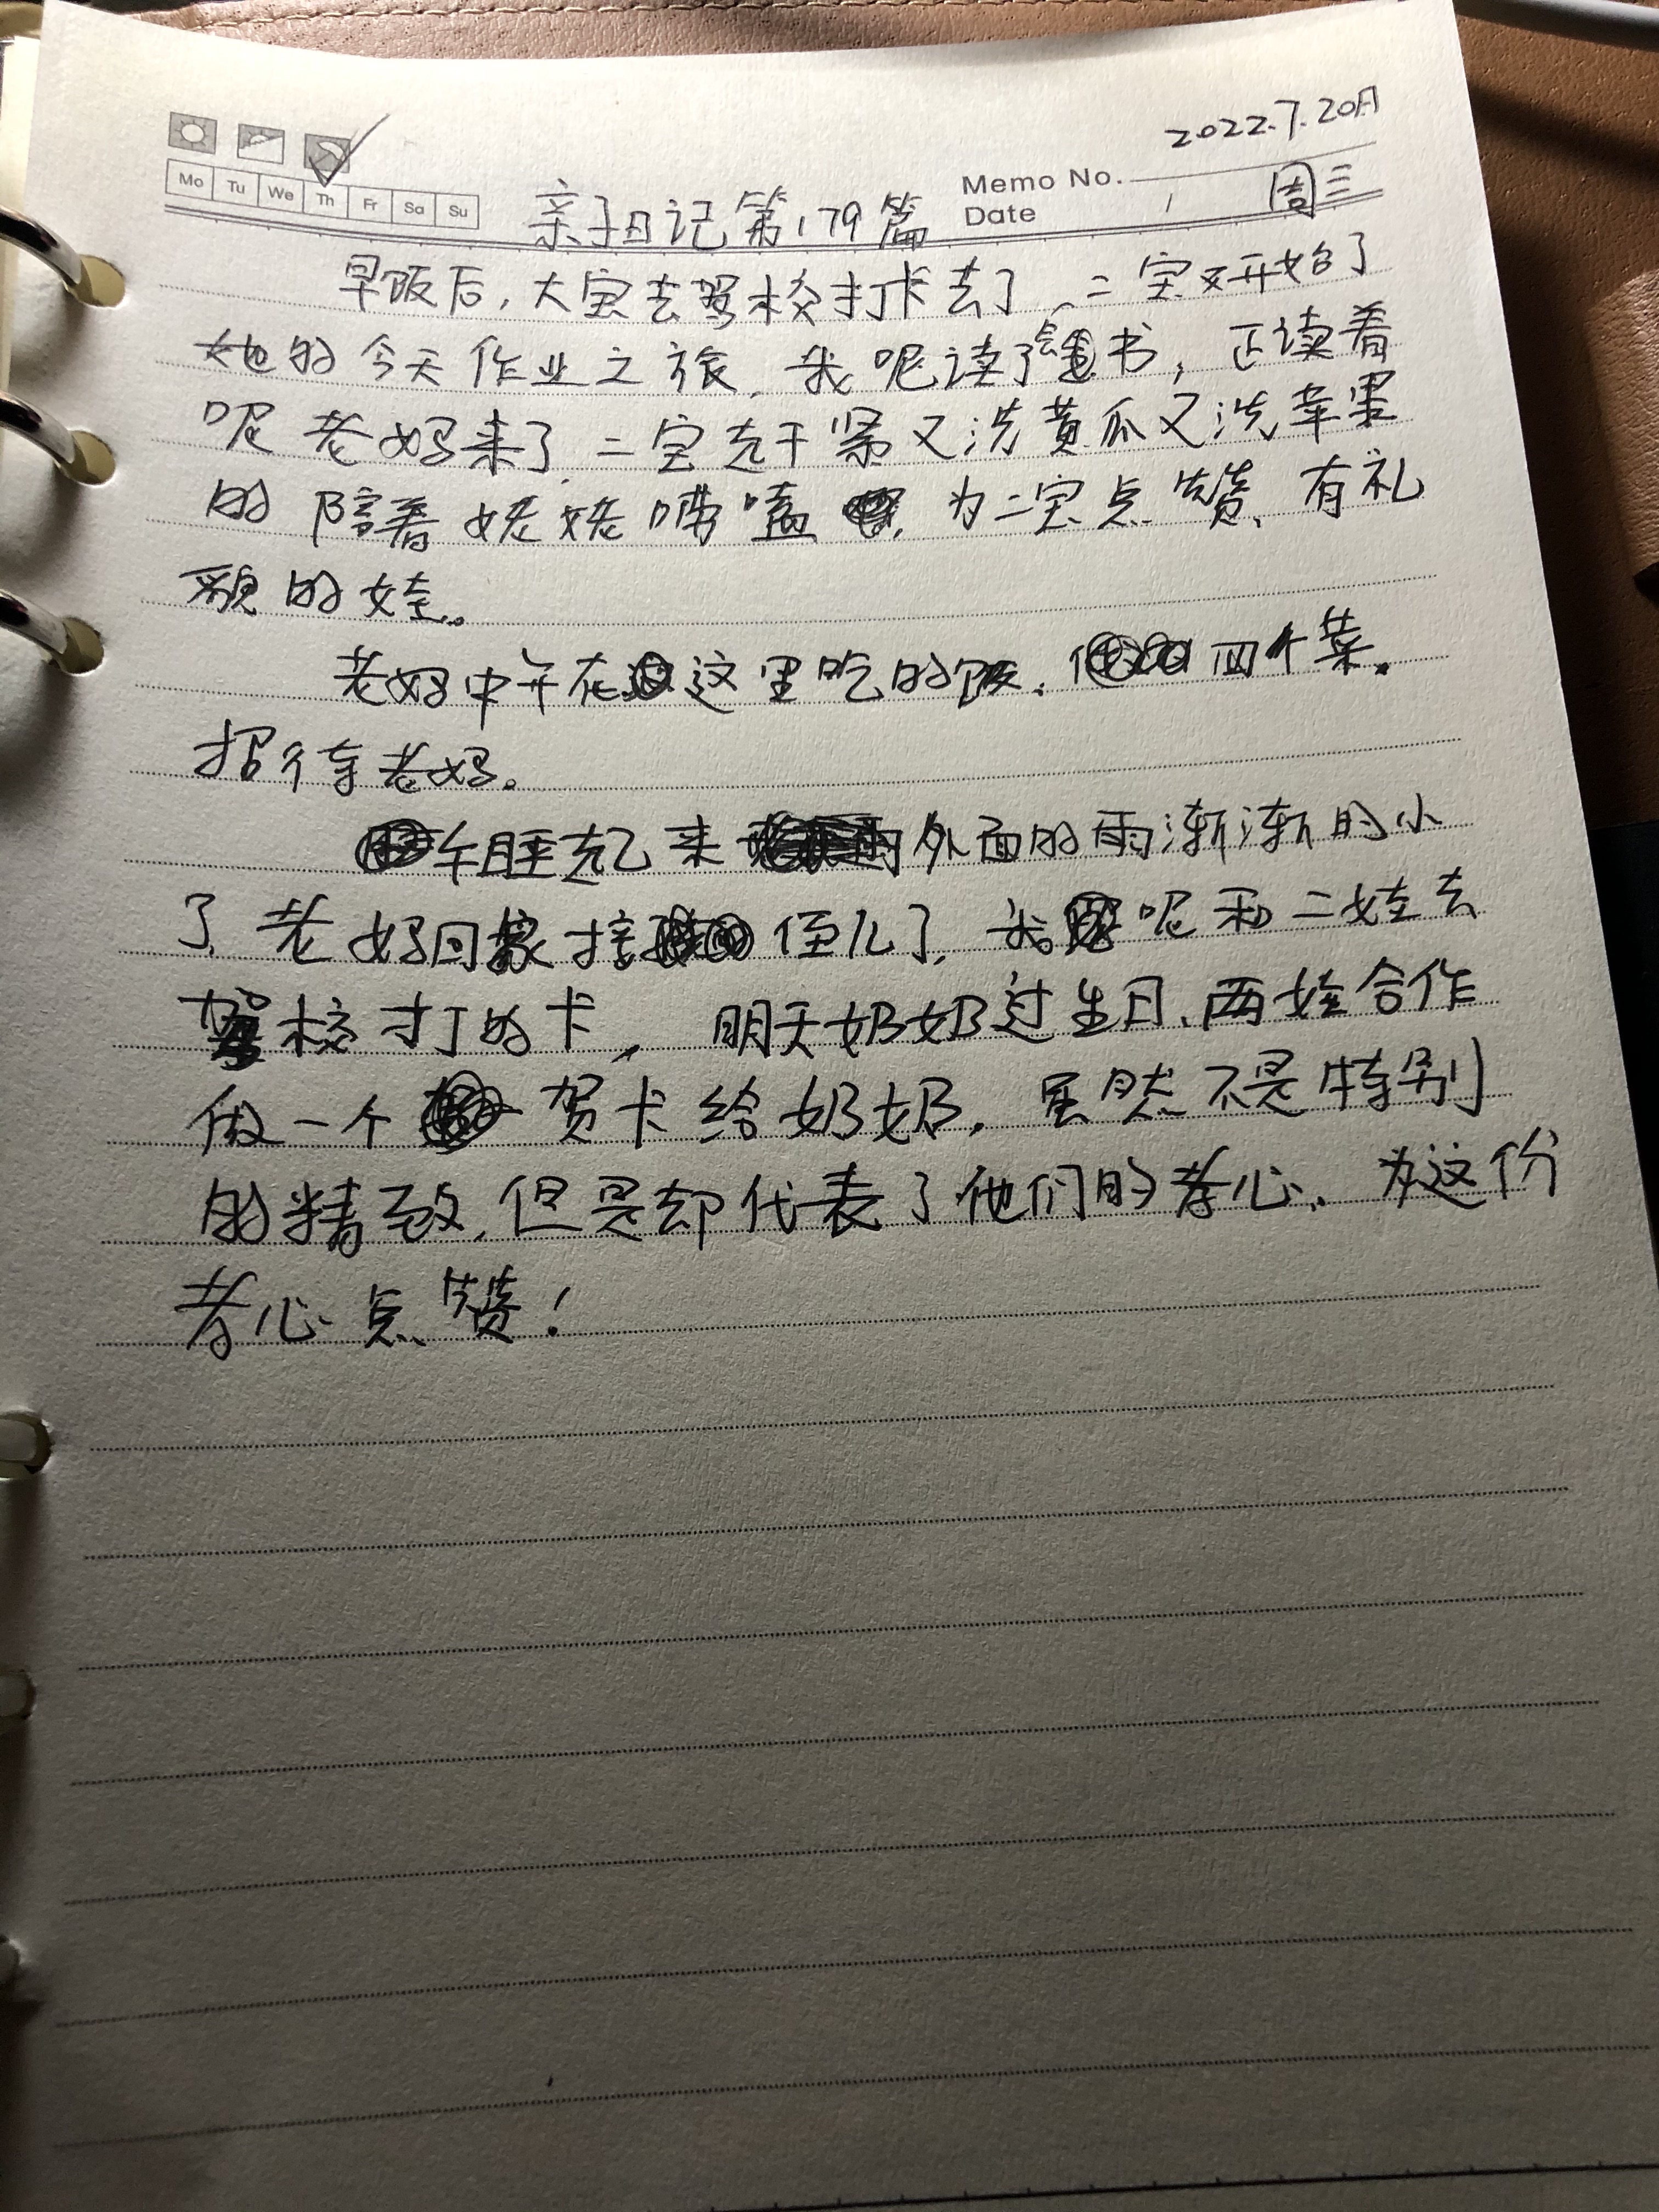 2022.7.20日
Mo Tu We Th Fr Sa Su
Memo No.
亲子日记第179篇
Date / 周三
早饭后，大宝去驾校打卡去了，二宝又开始了
她的今天作业之旅，我呢读了绘书，正读着
呢老妈来了，二宝赶紧又洗黄瓜又洗苹果
的陪着姥姥唠嗑，为二宝点赞、有礼
貌的娃。
老妈中午在这里吃的饭，四个菜。
招待老妈。
午睡起来外面的雨渐渐的小
了，老妈回家接侄儿了，我呢和二娃去
驾校打的卡， 明天奶奶过生日、两娃合作
做一个贺卡给奶奶，虽然不是特别
的精致，但是却代表了他们的孝心、为这份
孝心点赞！